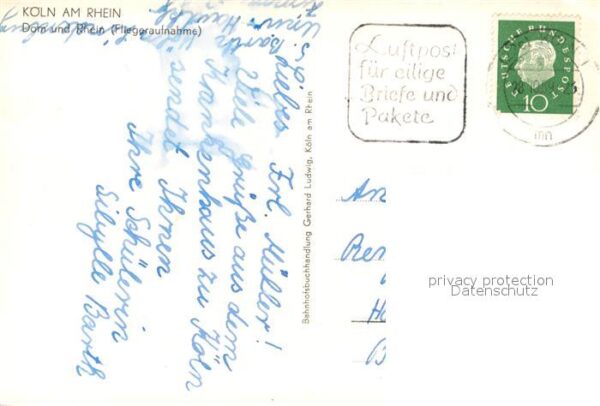 KÖLN AM RHEIN
Dom und Rhein (Fliegeraufnahme)
Liebes Frl. Müller!
Viele Grüße aus dem
Krankenhaus zu Köln
sendet Ihnen
Ihre Schülerin
Sibylle Barth
Bahnhofsbuchhandlung Gerhard Ludwig, Köln am Rhein
Luftpost
für eilige
Briefe und
Pakete
DEUTSCHE BUNDESPOST
10
An
privacy protection
Datenschutz